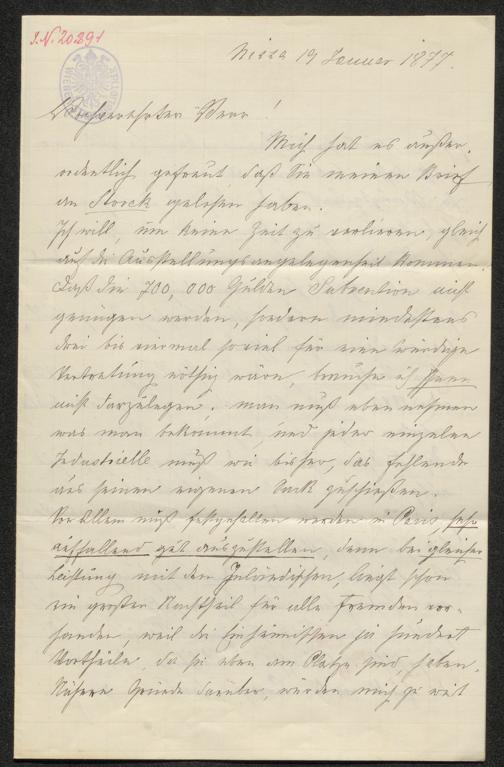 I.N. 20.291
Nizza 19 Januar 1877.
Verehrter Herr!
Mich hat es außer-
ordentlich gefreut, daß Sie meinen Brief
an Storck gelesen haben.
Ich will, um keine Zeit zu verlieren, gleich
auf die Ausstellungsangelegenheit kommen.
Daß die 700,000 Gulden Subvention nicht
genügen werden, sondern mindestens
drei bis viermal soviel für eine würdige
Vertretung nöthig wäre, brauche ich Ihnen
nicht darzulegen. man muß eben nehmen
was man bekommt, und jeder einzelne
Industrielle muß wie bisher, das fehlende
aus seinem eigenen Sack zuschießen.
Vor Allem muß festgehalten werden in Paris sehr
auffallend gut auszustellen, denn bei gleicher
Leistung mit den Inländischen, liegt schon
ein großer Nachtheil für alle Fremden vor-
handen, weil die Einheimischen ja hundert
Vortheile, da sie eben am Platze sind, haben.
Nähere Gründe darüber, würden mich zu weit